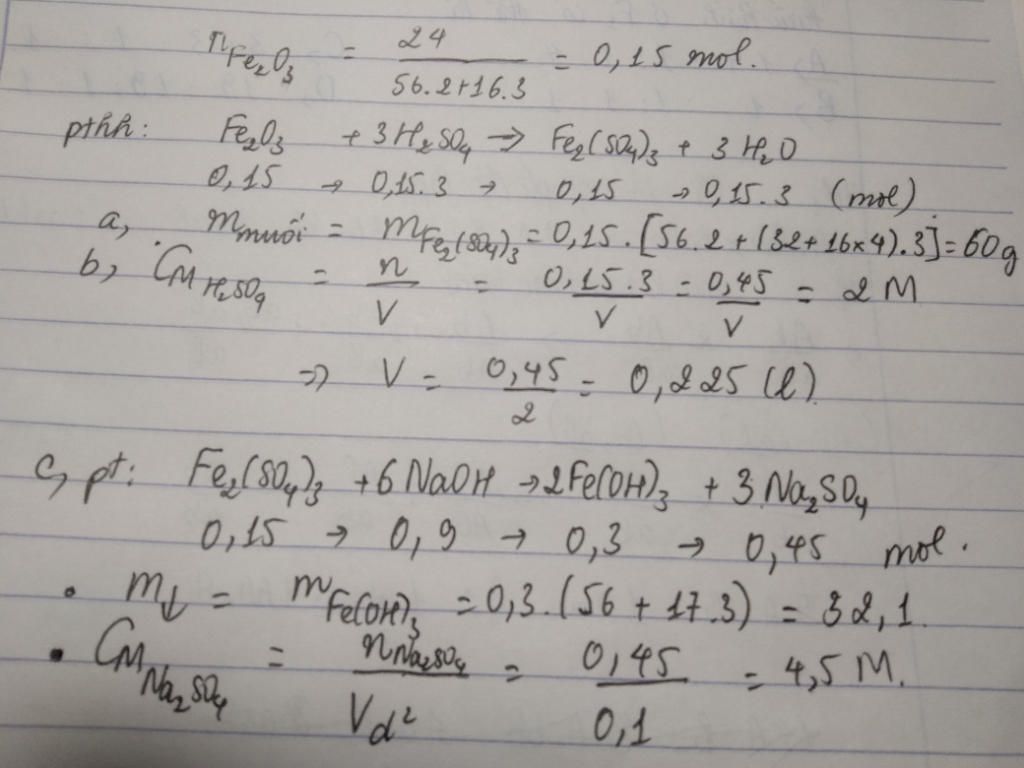 nFe₂O₃ = 24 / (56.2+16.3) = 0,15 mol.
pthh: Fe₂O₃ + 3H₂SO₄ → Fe₂(SO₄)₃ + 3H₂O
0,15 → 0,15.3 → 0,15 → 0,15.3 (mol).
a, m muối = mFe₂(SO₄)₃ = 0,15.[56.2+(32+16×4).3] = 60g
b, CM H₂SO₄ = n/V = 0,15.3/V = 0,45/V = 2M
=> V = 0,45/2 = 0,225 (l).
c, pt: Fe₂(SO₄)₃ + 6NaOH → 2Fe(OH)₃ + 3Na₂SO₄
0,15 → 0,9 → 0,3 → 0,45 mol.
• m↓ = mFe(OH)₃ = 0,3.(56+17.3) = 32,1.
• CM Na₂SO₄ = nNa₂SO₄/Vd² = 0,45/0,1 = 4,5M.